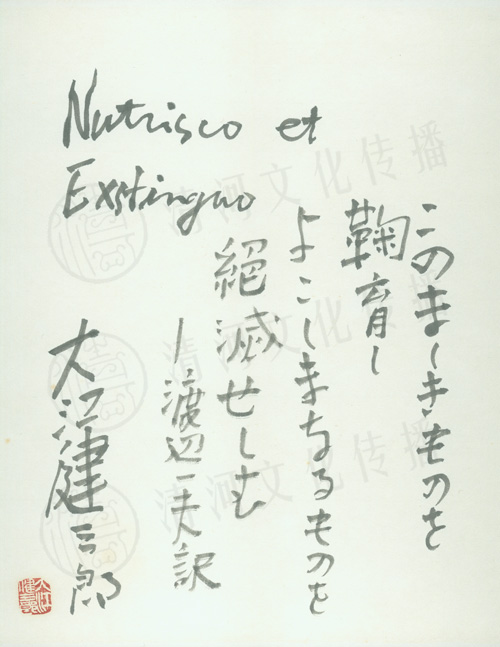 Nutrisco et
Exstinguo
このましきものを
鞠育し
よこしまなるものを
絶滅せしむ
—渡辺一夫訳
大江健三郎
清河文化传播
清河文化传播
清河文化传播